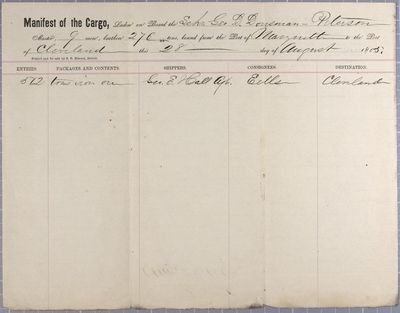 Manifest of the Cargo, Laden on Board the Schr Geo. D. Dousman - Peterson
Master, 9 men, burthen 276 tons, bound from the Port of Marquette to the Port
of Cleveland this 28 day of August
ENTRIES. PACKAGES AND CONTENTS. SHIPPERS. CONSIGNEES. DESTINATION.
512 tons iron ore Geo. E. Hall Agt. Eells Cleveland